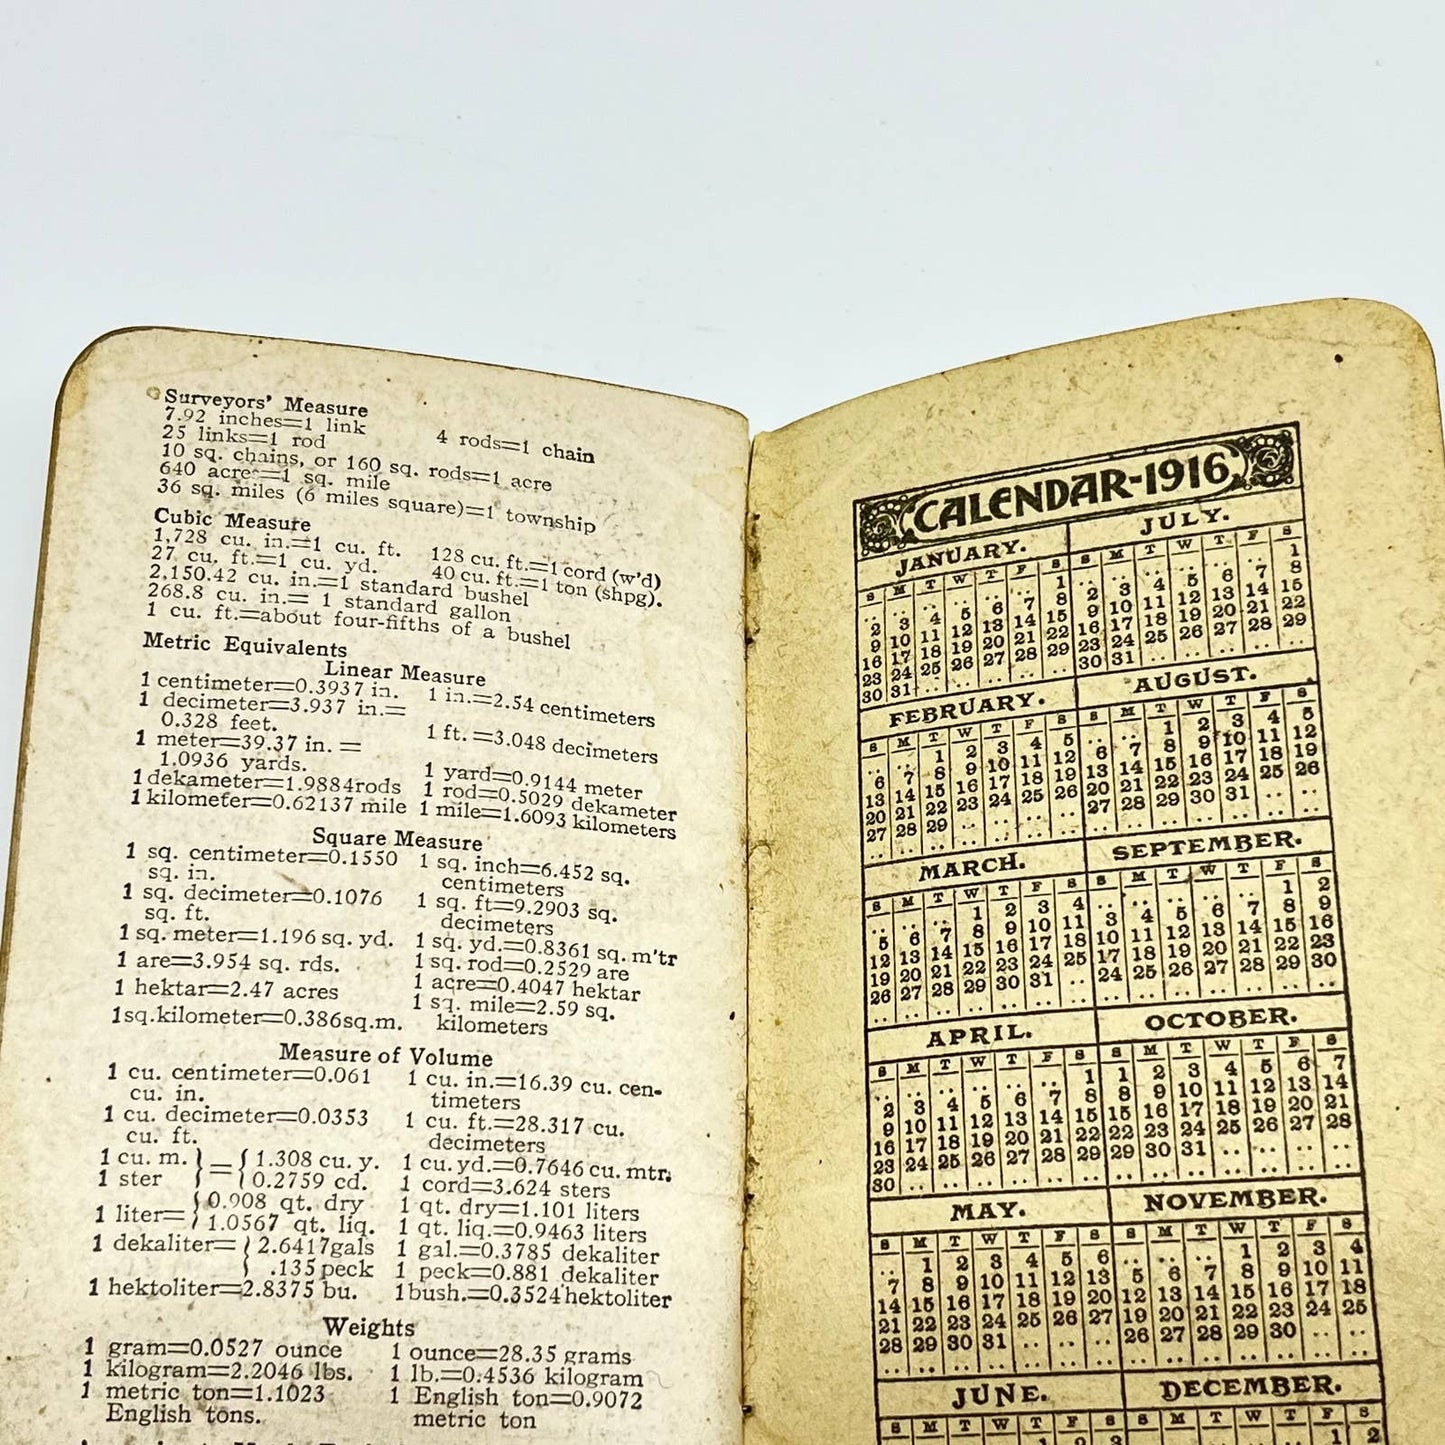 Surveyors' Measure
7.92 inches=1 link
25 links=1 rod 4 rods=1 chain
10 sq. chains, or 160 sq. rods=1 acre
640 acres=1 sq. mile
36 sq. miles (6 miles square)=1 township
Cubic Measure
1,728 cu. in.=1 cu. ft. 128 cu. ft.=1 cord (w'd)
27 cu. ft.=1 cu. yd. 40 cu. ft.=1 ton (shpg).
2,150.42 cu. in.=1 standard bushel
268.8 cu. in.= 1 standard gallon
1 cu. ft.=about four-fifths of a bushel
Metric Equivalents
Linear Measure
1 centimeter=0.3937 in. 1 in.=2.54 centimeters
1 decimeter=3.937 in.=
0.328 feet. 1 ft. =3.048 decimeters
1 meter=39.37 in. =
1.0936 yards. 1 yard=0.9144 meter
1 dekameter=1.9884rods 1 rod=0.5029 dekameter
1 kilometer=0.62137 mile 1 mile=1.6093 kilometers
Square Measure
1 sq. centimeter=0.1550 1 sq. inch=6.452 sq.
sq. in. centimeters
1 sq. decimeter=0.1076 1 sq. ft=9.2903 sq.
sq. ft. decimeters
1 sq. meter=1.196 sq. yd. 1 sq. yd.=0.8361 sq. m'tr
1 are=3.954 sq. rds. 1 sq. rod=0.2529 are
1 hektar=2.47 acres 1 acre=0.4047 hektar
1sq.kilometer=0.386sq.m. 1 sq. mile=2.59 sq.
kilometers
Measure of Volume
1 cu. centimeter=0.061 1 cu. in.=16.39 cu. cen-
cu. in. timeters
1 cu. decimeter=0.0353 1 cu. ft.=28.317 cu.
cu. ft. decimeters
1 cu. m. } = { 1.308 cu. y. 1 cu. yd.=0.7646 cu. mtr.
1 ster } { 0.2759 cd. 1 cord=3.624 sters
1 liter= { 0.908 qt. dry 1 qt. dry=1.101 liters
{ 1.0567 qt. liq. 1 qt. liq.=0.9463 liters
1 dekaliter= { 2.6417gals 1 gal.=0.3785 dekaliter
{ .135 peck 1 peck=0.881 dekaliter
1 hektoliter=2.8375 bu. 1bush.=0.3524 hektoliter
Weights
1 gram=0.0527 ounce 1 ounce=28.35 grams
1 kilogram=2.2046 lbs. 1 lb.=0.4536 kilogram
1 metric ton=1.1023 1 English ton=0.9072
English tons. metric ton
CALENDAR-1916
JANUARY.
S M T W T F S
.. .. .. .. .. .. 1
2 3 4 5 6 7 8
9 10 11 12 13 14 15
16 17 18 19 20 21 22
23 24 25 26 27 28 29
30 31 .. .. .. .. ..
FEBRUARY.
S M T W T F S
.. .. 1 2 3 4 5
6 7 8 9 10 11 12
13 14 15 16 17 18 19
20 21 22 23 24 25 26
27 28 29 .. .. .. ..
.. .. .. .. .. .. ..
MARCH.
S M T W T F S
.. .. .. 1 2 3 4
5 6 7 8 9 10 11
12 13 14 15 16 17 18
19 20 21 22 23 24 25
26 27 28 29 30 31 ..
.. .. .. .. .. .. ..
APRIL.
S M T W T F S
.. .. .. .. .. .. 1
2 3 4 5 6 7 8
9 10 11 12 13 14 15
16 17 18 19 20 21 22
23 24 25 26 27 28 29
30 .. .. .. .. .. ..
MAY.
S M T W T F S
.. 1 2 3 4 5 6
7 8 9 10 11 12 13
14 15 16 17 18 19 20
21 22 23 24 25 26 27
28 29 30 31 .. .. ..
.. .. .. .. .. .. ..
JUNE.
S M T W T F S
1 2 3
JULY.
S M T W T F S
.. .. .. .. .. .. 1
2 3 4 5 6 7 8
9 10 11 12 13 14 15
16 17 18 19 20 21 22
23 24 25 26 27 28 29
30 31 .. .. .. .. ..
AUGUST.
S M T W T F S
.. .. 1 2 3 4 5
6 7 8 9 10 11 12
13 14 15 16 17 18 19
20 21 22 23 24 25 26
27 28 29 30 31 .. ..
.. .. .. .. .. .. ..
SEPTEMBER.
S M T W T F S
.. .. .. .. .. 1 2
3 4 5 6 7 8 9
10 11 12 13 14 15 16
17 18 19 20 21 22 23
24 25 26 27 28 29 30
.. .. .. .. .. .. ..
OCTOBER.
S M T W T F S
1 2 3 4 5 6 7
8 9 10 11 12 13 14
15 16 17 18 19 20 21
22 23 24 25 26 27 28
29 30 31 .. .. .. ..
.. .. .. .. .. .. ..
NOVEMBER.
S M T W T F S
.. .. .. 1 2 3 4
5 6 7 8 9 10 11
12 13 14 15 16 17 18
19 20 21 22 23 24 25
26 27 28 29 30 .. ..
.. .. .. .. .. .. ..
DECEMBER.
S M T W T F S
.. .. .. .. .. 1 2